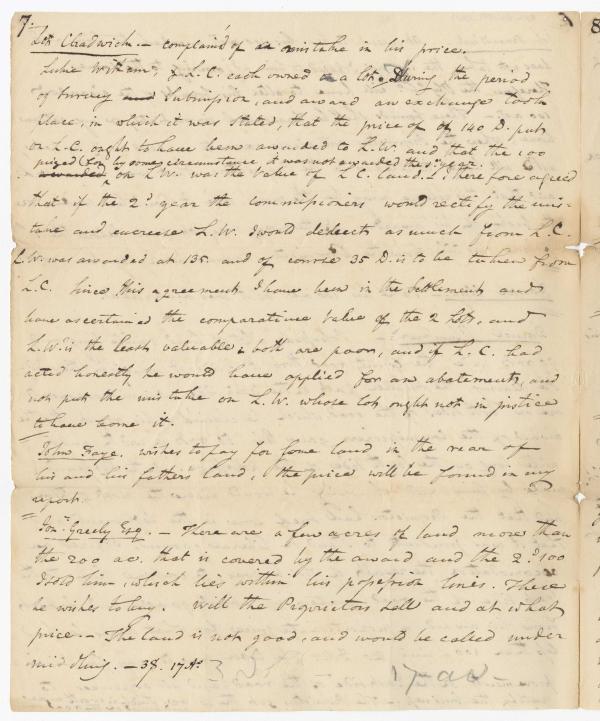 7.
Lot Chadwick. - complain'd of a mistake in his price.
Luke Witham, & L.C. each owned a lot. During the period
of survey and Submission, and award an exchange took
place, in which it was stated, that the price of of 140 D. put
on L.C. ought to have been awarded to L.W. and that the 100
prized (for by some circumstance it was not awarded the 1st year.
awarded on L.W. was the value of L C. land. I therefore agreed
that if the 2d year the commissioners would rectify the mis-
take and encrease L.W. I would deduct as much from L.C.
L.W. was awarded at 135. and of course 35 D. is to be taken from
L.C. Since this agreement I have been in the Settlement and
have ascertained the comparative value of the 2 Lots, and
L.W.'s is the least valuable, both are poor, and if L. C. had
acted honestly he would have applied for an abatement, and
not put the mistake on L.W. whose lot ought not in justice
to have borne it.
John Faye. wishes to pay for some land in the rear of
his and his father's land, & the price will be found in my
report.
Jona. Greely Esq. - There are a few acres of land more than
the 200 ac. that is covered by the award and the 2d 100
I sold him, which lies within his possession lines. These
he wishes to buy. Will the Proprietors sell and at what
price. - The land is not good, and would be called under
midling. - 38. 17 As
17 ac -
8